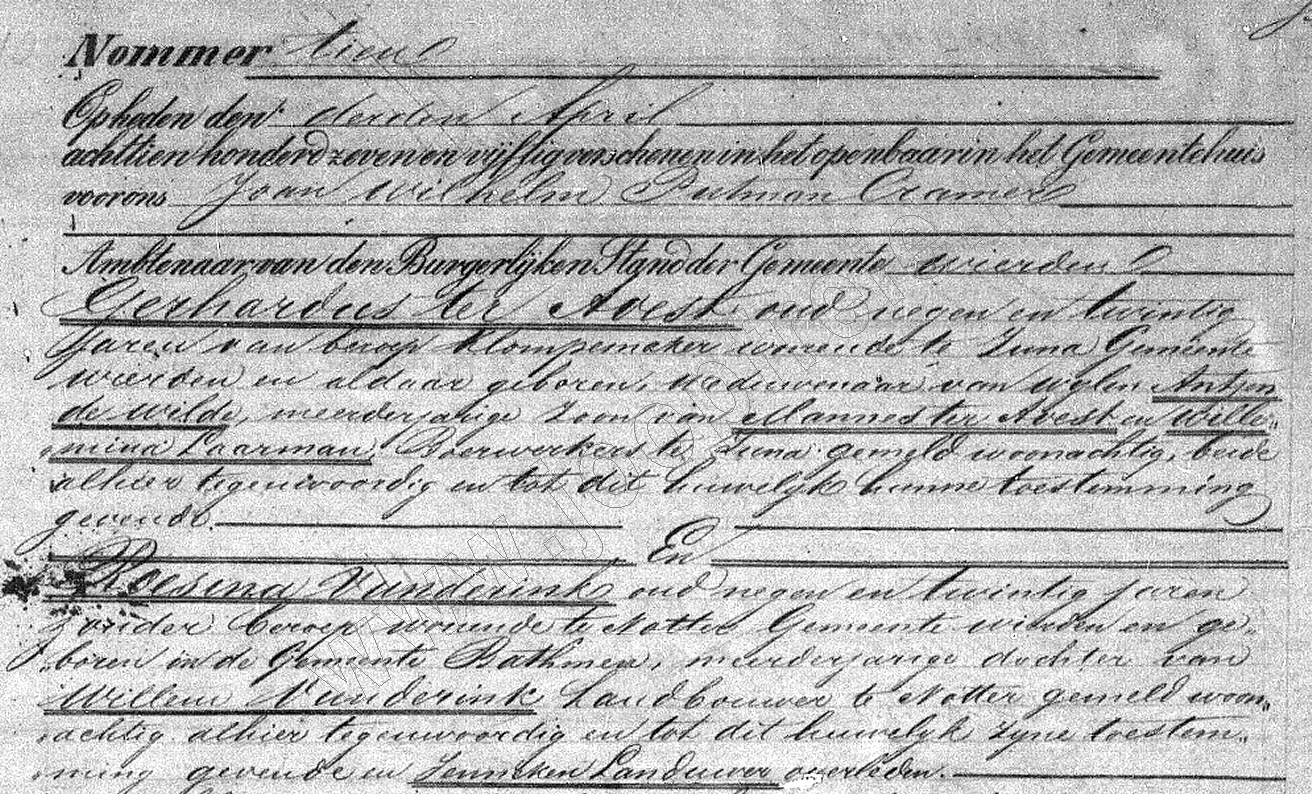 Nommer tien
Opheden den derden April
achttien honderd zeven en vijftig verschenen in het openbaar in het Gemeentehuis
voor ons Joan Wilhelm Putman Cramer
Ambtenaar van den Burgerlijken Stand der Gemeente Wierden
Gerhardus ter Avest oud negen en twintig
Jaren van beroep Klompemaker wonende te Zuna Gemeente
Wierden en aldaar geboren, Weduwenaar van wylen Antjen
de Wilde, meerderjarige Zoon van Mannes ter Avest en Wille„
„mina Laarman, Boerwerkers te Zuna gemeld woonachtig, beide
alhier tegenwoordig en tot dit huwelyk hunne toestemming
gevende.
En
Roesina Vunderink oud negen en twintig jaren
zonder beroep wonende te Notter Gemeente Wierden en ge„
„boren in de Gemeente Bathmen, meerderjarige dochter van
Willem Vunderink Landbouwer te Notter gemeld woon„
„achtig alhier tegenwoordig en tot dit huwelyk zyne toestem„
„ming gevende en Jenneken Landuwer overleden.